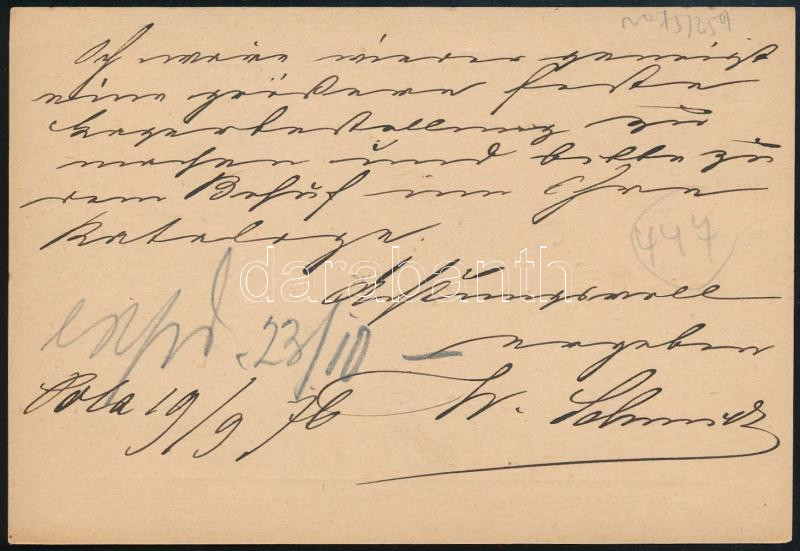 No 75/259
Ich wäre wieder geneigt
eine größere feste
Lagerbestellung zu
machen und bitte zu
dem Behuf um Ihre
Kataloge.
darabanth
447
Achtungsvoll
ergeben
expd. 23/10 –
Pola 19/9 76 W. Schmidt